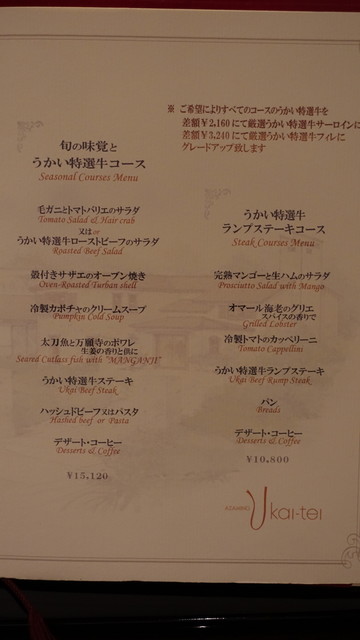 ※ ご希望によりすべてのコースのうかい特選牛を
差額¥2,160にて厳選うかい特選牛サーロインに
差額¥3,240にて厳選うかい特選牛フィレに
グレードアップ致します
旬の味覚と
うかい特選牛コース
Seasonal Courses Menu
毛ガニとトマトバリエのサラダ
Tomato Salad & Hair crab
又は or
うかい特選牛ローストビーフのサラダ
Roasted Beef Salad
殻付きサザエのオーブン焼き
Oven-Roasted Turban shell
冷製カボチャのクリームスープ
Pumpkin Cold Soup
太刀魚と万願寺のポワレ
生姜の香りと供に
Seared Cutlass fish with "MANGANJI"
うかい特選牛ステーキ
Ukai Beef Steak
ハッシュドビーフ又はパスタ
Hashed beef or Pasta
デザート・コーヒー
Desserts & Coffee
¥15,120
うかい特選牛
ランプステーキコース
Steak Courses Menu
完熟マンゴーと生ハムのサラダ
Prosciutto Salad with Mango
オマール海老のグリエ
スパイスの香りで
Grilled Lobster
冷製トマトのカッペリーニ
Tomato Cappellini
うかい特選牛ランプステーキ
Ukai Beef Rump Steak
パン
Breads
デザート・コーヒー
Desserts & Coffee
¥10,800
Ukai-tei